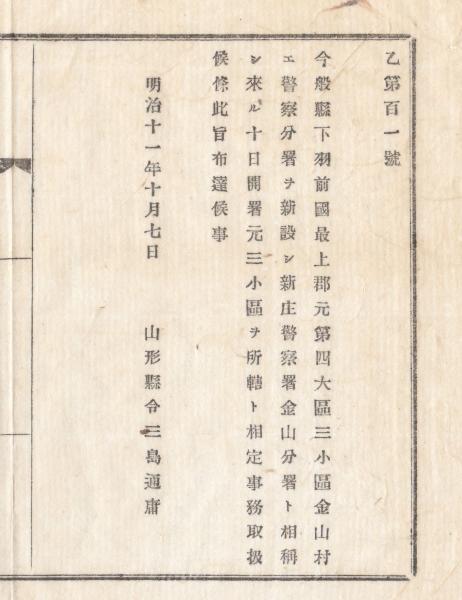 乙第百一號
今般縣下羽前國最上郡元第四大區三小區金山村
エ警察分署ヲ新設シ新庄警察署金山分署ト相稱
シ來ル十日開署元三小區ヲ所轄ト相定事務取扱
候條此旨布達候事
明治十一年十月七日　山形縣令三島通庸